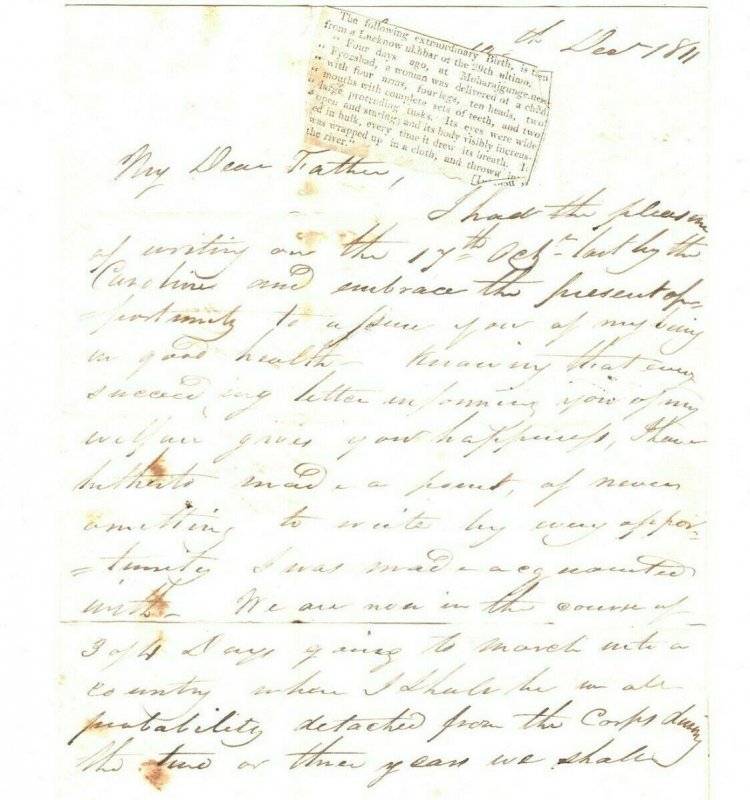 12th Decr 1811
The following extraordinary Birth, is
from a Lucknow ukhbar of the 29th ultimo.
" Four days ago, at Moharajgunge near
" Fyozabad, a woman was delivered of a child
" with four arms, four legs, ten heads, two
" mouths with complete sets of teeth, and two
" large protruding tusks. Its eyes were wide
open and staring; and its body visibly increas-
ed in bulk, every time it drew its breath. It
was wrapped up in a cloth, and thrown in
the river."
My Dear Father,
I had the pleasure
of writing on the 17th Octr last by the
Caroline and embrace the present op-
=portunity to assure you of my being
in good health - Knowing that every
succeeding letter informing you of my
welfare gives you happiness, I have
hitherto made a point, of never
omitting to write by every oppor-
=tunity I was made acquainted
with - We are now in the course of
3 of 4 Days going to march into a
country where I shall be in all
probability detached from the Corps during
the two or three years we shall